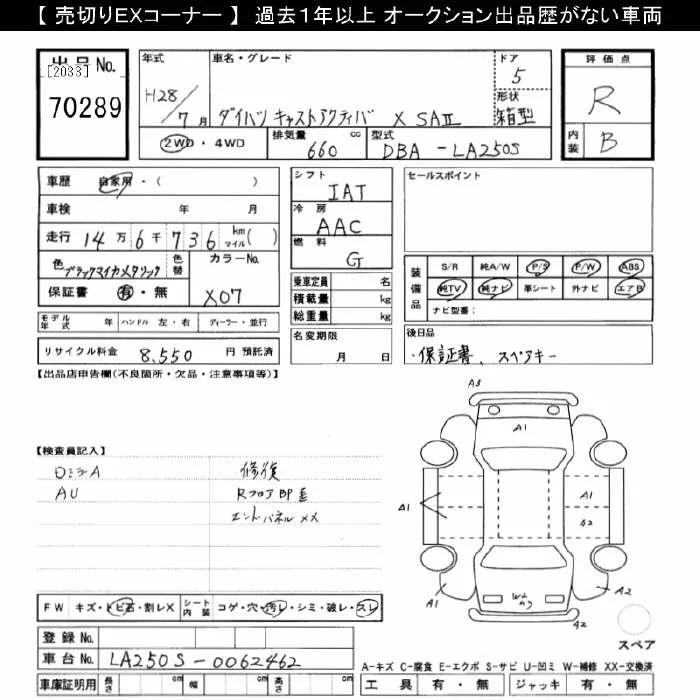 【 売切りEXコーナー 】 過去１年以上 オークション出品歴がない車両
出品No.
[2033]
70289
年式
H28/7月
車名・グレード
ダイハツ キャストアクティバ X SAⅡ
ドア
5
形状
箱型
2WD・4WD
排気量 660 cc
型式 DBA-LA250S
評価点
R
内装 B
車歴 自家用・( )
車検 年 月
走行 14万6千736 km マイル( )
色 ブラックマイカメタリック 色替 カラーNo.
保証書 有・無 X07
モデル年式 年 ハンドル 左・右 ディーラー・並行
リサイクル料金 8,550 円 預託済
シフト
IAT
冷房
AAC
燃料
G
乗車定員 名
積載量 kg
総重量 kg
名変期限
月 日
セールスポイント
装備品
S/R 純A/W P/S P/W ABS
純TV 純ナビ 革シート 外ナビ エアB
ナビ型番:
後日品
・保証書、スペアキー
【出品店申告欄(不良箇所・欠品・注意事項等)】
【検査員記入】
ロミラーA
AU
修復
Rフロア BP歪
エンドパネル XX
A3
A1
A1
A1
A2
W2
A1
A2
A2
スペア
FW キズ・トビ石・割レX シート内装 コゲ・穴・汚レ・シミ・破レ・スレ
登録No.
車台No. LA250S-0062462
車庫証明用 長さ cm 幅 cm 高さ cm
A-キズ C-腐食 E-エクボ S-サビ U-凹ミ W-補修 XX-交換済
工具 有・無 ジャッキ 有・無